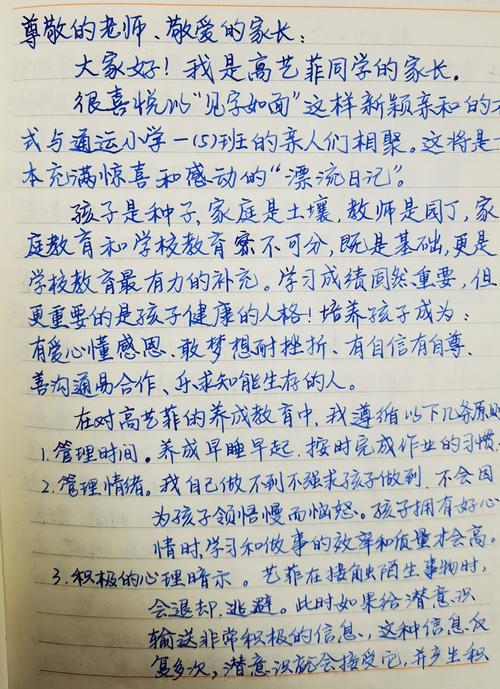 尊敬的老师、敬爱的家长：
大家好！我是高艺菲同学的家长。
很喜悦以“见字如面”这样新颖亲和的方
式与通运小学一(5)班的亲人们相聚。这将是一
本充满惊喜和感动的“漂流日记”。
孩子是种子，家庭是土壤，教师是园丁，家
庭教育和学校教育密不可分，既是基础，更是
学校教育最有力的补充。学习成绩固然重要，但
更重要的是孩子健康的人格！培养孩子成为：
有爱心懂感恩、敢梦想耐挫折、有自信有自尊、
善沟通易合作、乐求知能生存的人。
在对高艺菲的养成教育中，我遵循以下几条原则
1.管理时间。养成早睡早起，按时完成作业的习惯.
2.管理情绪。我自己做不到不强求孩子做到，不会因
为孩子领悟慢而恼怒。孩子拥有好心
情时，学习和做事的效率和质量才会高。
3.积极的心理暗示。艺菲在接触陌生事物时，
会退却、逃避。此时如果给潜意识
输送非常积极的信息，这种信息反
复多次，潜意识就会接受它，并产生积